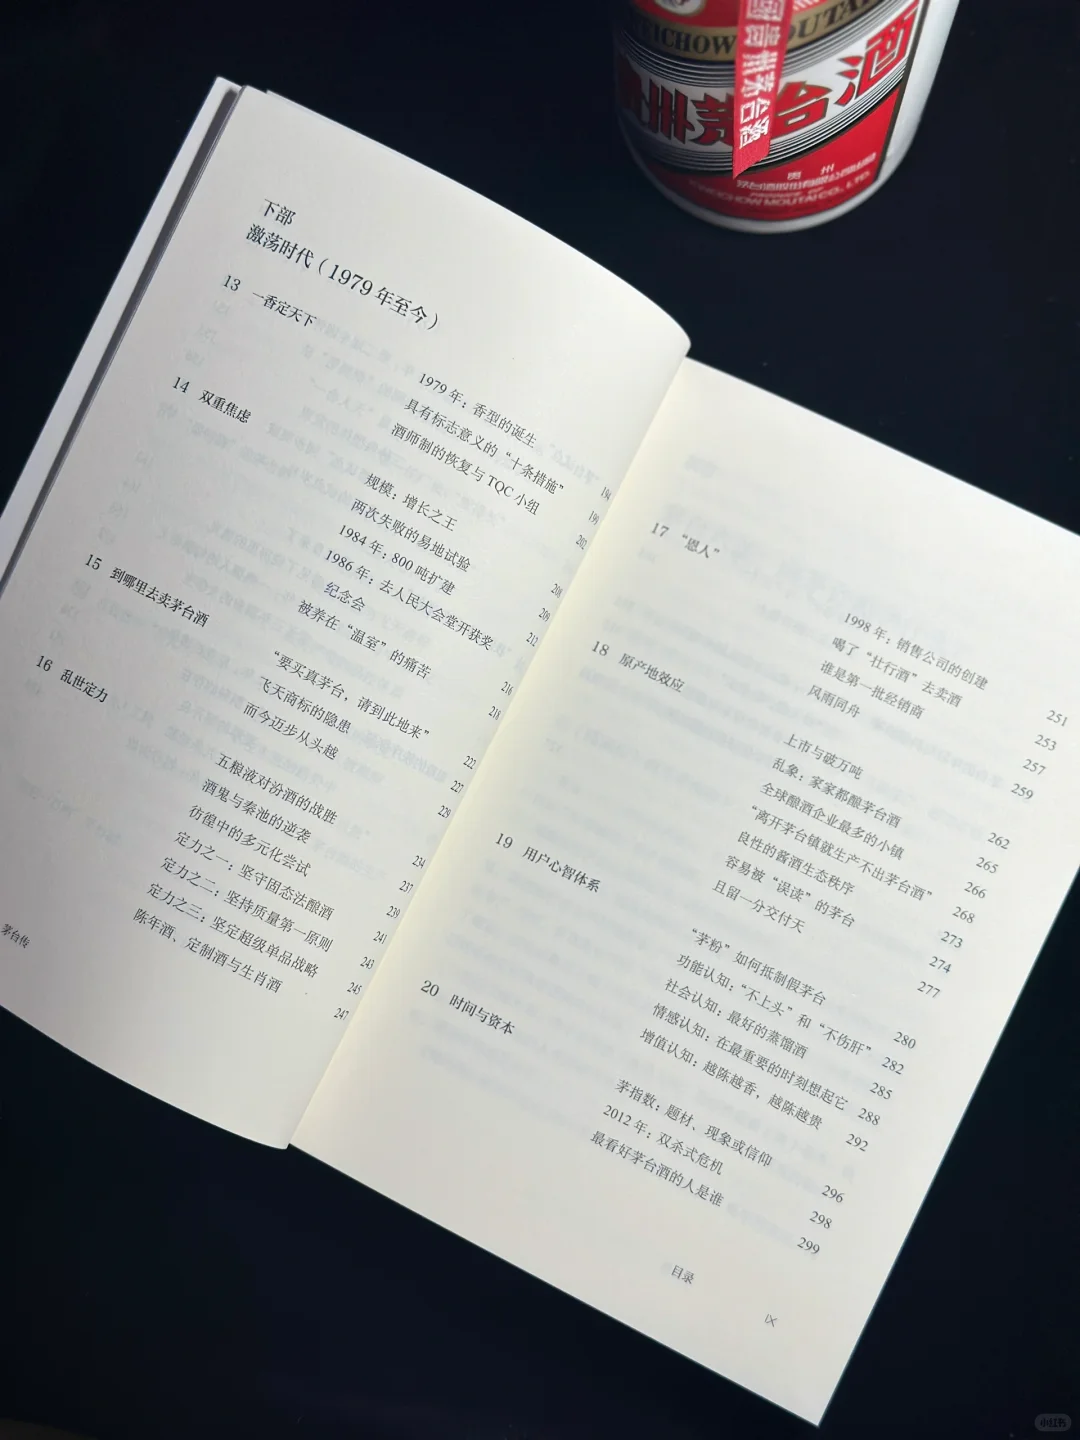 下部
激荡时代（1979 年至今）
13 一香定天下
1979 年：香型的诞生 194
具有标志意义的“十条措施” 199
酒师制的恢复与 TQC 小组 202
14 双重焦虑
规模：增长之王 208
两次失败的易地试验 209
1984 年：800 吨扩建 212
1986 年：去人民大会堂开获奖
纪念会 216
被养在“温室”的痛苦 218
15 到哪里去卖茅台酒
“要买真茅台，请到此地来” 222
飞天商标的隐患 227
而今迈步从头越 229
16 乱世定力
五粮液对汾酒的战胜 234
酒鬼与秦池的逆袭 237
彷徨中的多元化尝试 239
定力之一：坚守固态法酿酒 241
定力之二：坚持质量第一原则 243
定力之三：坚定超级单品战略 245
陈年酒、定制酒与生肖酒 247
茅台传
17 “恩人”
1998 年：销售公司的创建 251
喝了“壮行酒”去卖酒 253
谁是第一批经销商 257
风雨同舟 259
18 原产地效应
上市与破万吨 262
乱象：家家都酿茅台酒 265
全球酿酒企业最多的小镇 266
“离开茅台镇就生产不出茅台酒” 268
良性的酱酒生态秩序 273
容易被“误读”的茅台 274
且留一分交付天 277
19 用户心智体系
“茅粉”如何抵制假茅台 280
功能认知：“不上头”和“不伤肝” 282
社会认知：最好的蒸馏酒 285
情感认知：在最重要的时刻想起它 288
增值认知：越陈越香，越陈越贵 292
20 时间与资本
茅指数：题材、现象或信仰 296
2012 年：双杀式危机 298
最看好茅台酒的人是谁 299
目录
IX
EICHOW MOUTAI
貴州茅台酒
國貴州茅台酒
贵州
茅台酒股份有限公司
KWEICHOW MOUTAI CO., LTD.
小红书